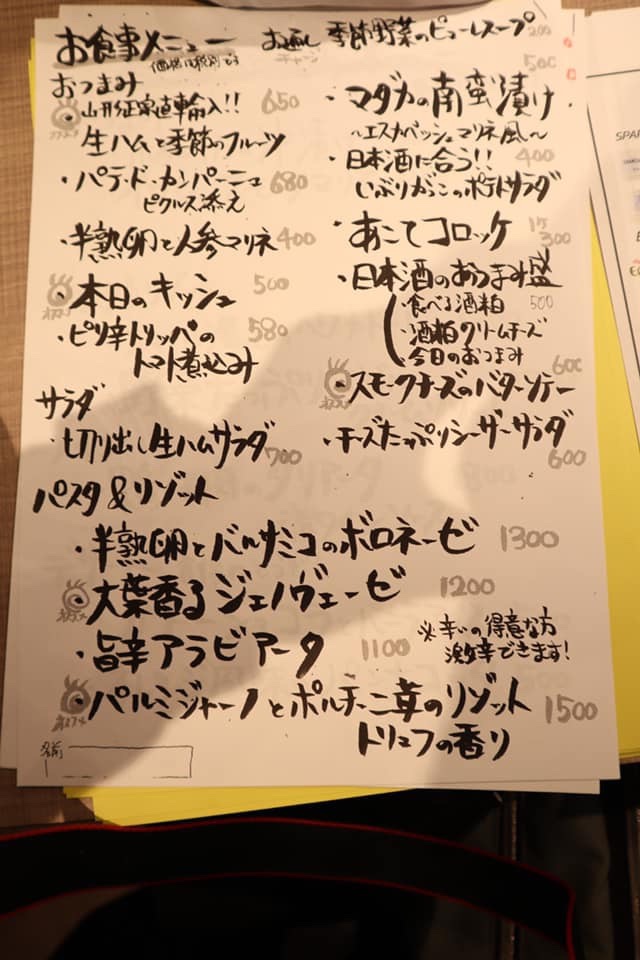 お食事メニュー
(価格は税別です)
お通し 季節野菜のピューレスープ 200
チャージ 500
おつまみ
・山形征家直輸入!! 650
生ハムと季節のフルーツ
・パテ・ド・カンパーニュ 680
ピクルス添え
・半熟卵と人参マリネ 400
・本日のキッシュ 500
・ピリ辛トリッパの 580
トマト煮込み
・マダカの南蛮漬け
〜エスカベッシュマリネ風〜
・日本酒に合う!! 400
いぶりがっこのポテトサラダ
・あこてコロッケ 1ケ 300
・日本酒のおつまみ盛
・食べる酒粕 500
・酒粕クリームチーズ
・今日のおつまみ
・スモークチーズのバターソテー 600
・チーズたっぷりシーザーサラダ
600
サラダ
・切り出し生ハムサラダ 700
パスタ&リゾット
・半熟卵とバルサミコのボロネーゼ 1300
・大葉香るジェノヴェーゼ 1200
・旨辛アラビアータ 1100
※辛いの得意な方
激辛できます!
・パルミジャーノとポルチーニ茸のリゾット 1500
トリュフの香り
名前
SPAR